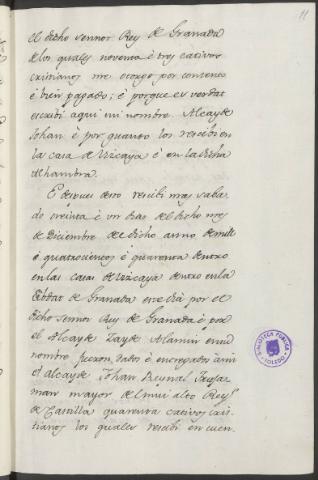 11
el dicho sennor Rey de Granada
de los quales noventa é tres cativos
cristianos me otorgo por contento
é bien pagado; é porque es verdat
escribi aqui mi nombre. Alcayde
Johan é por quanto los rescibi en
la casa de Vizcaya é en la dicha
Alhambra.
E despues desto rescibi mas saba-
do treinta é un dias del dicho mes
de Diciembre de dicho anno de mill
é quatrocientos é quarenta dentro
en las casas de Vizcaya dentro en la
Cibdat de Granada ese dia por el
dicho sennor Rey de Granada é por
el Alcayde Zayde Alamin en su
nombre fueron dados é entregados á mi
el alcayde Johan Reynal
man mayor del mui alto Rey
de Castilla quarenta cativos cris-
tianos los quales rescibi en cuen-
BIBLIOTECA PÚBLICA
TOLEDO